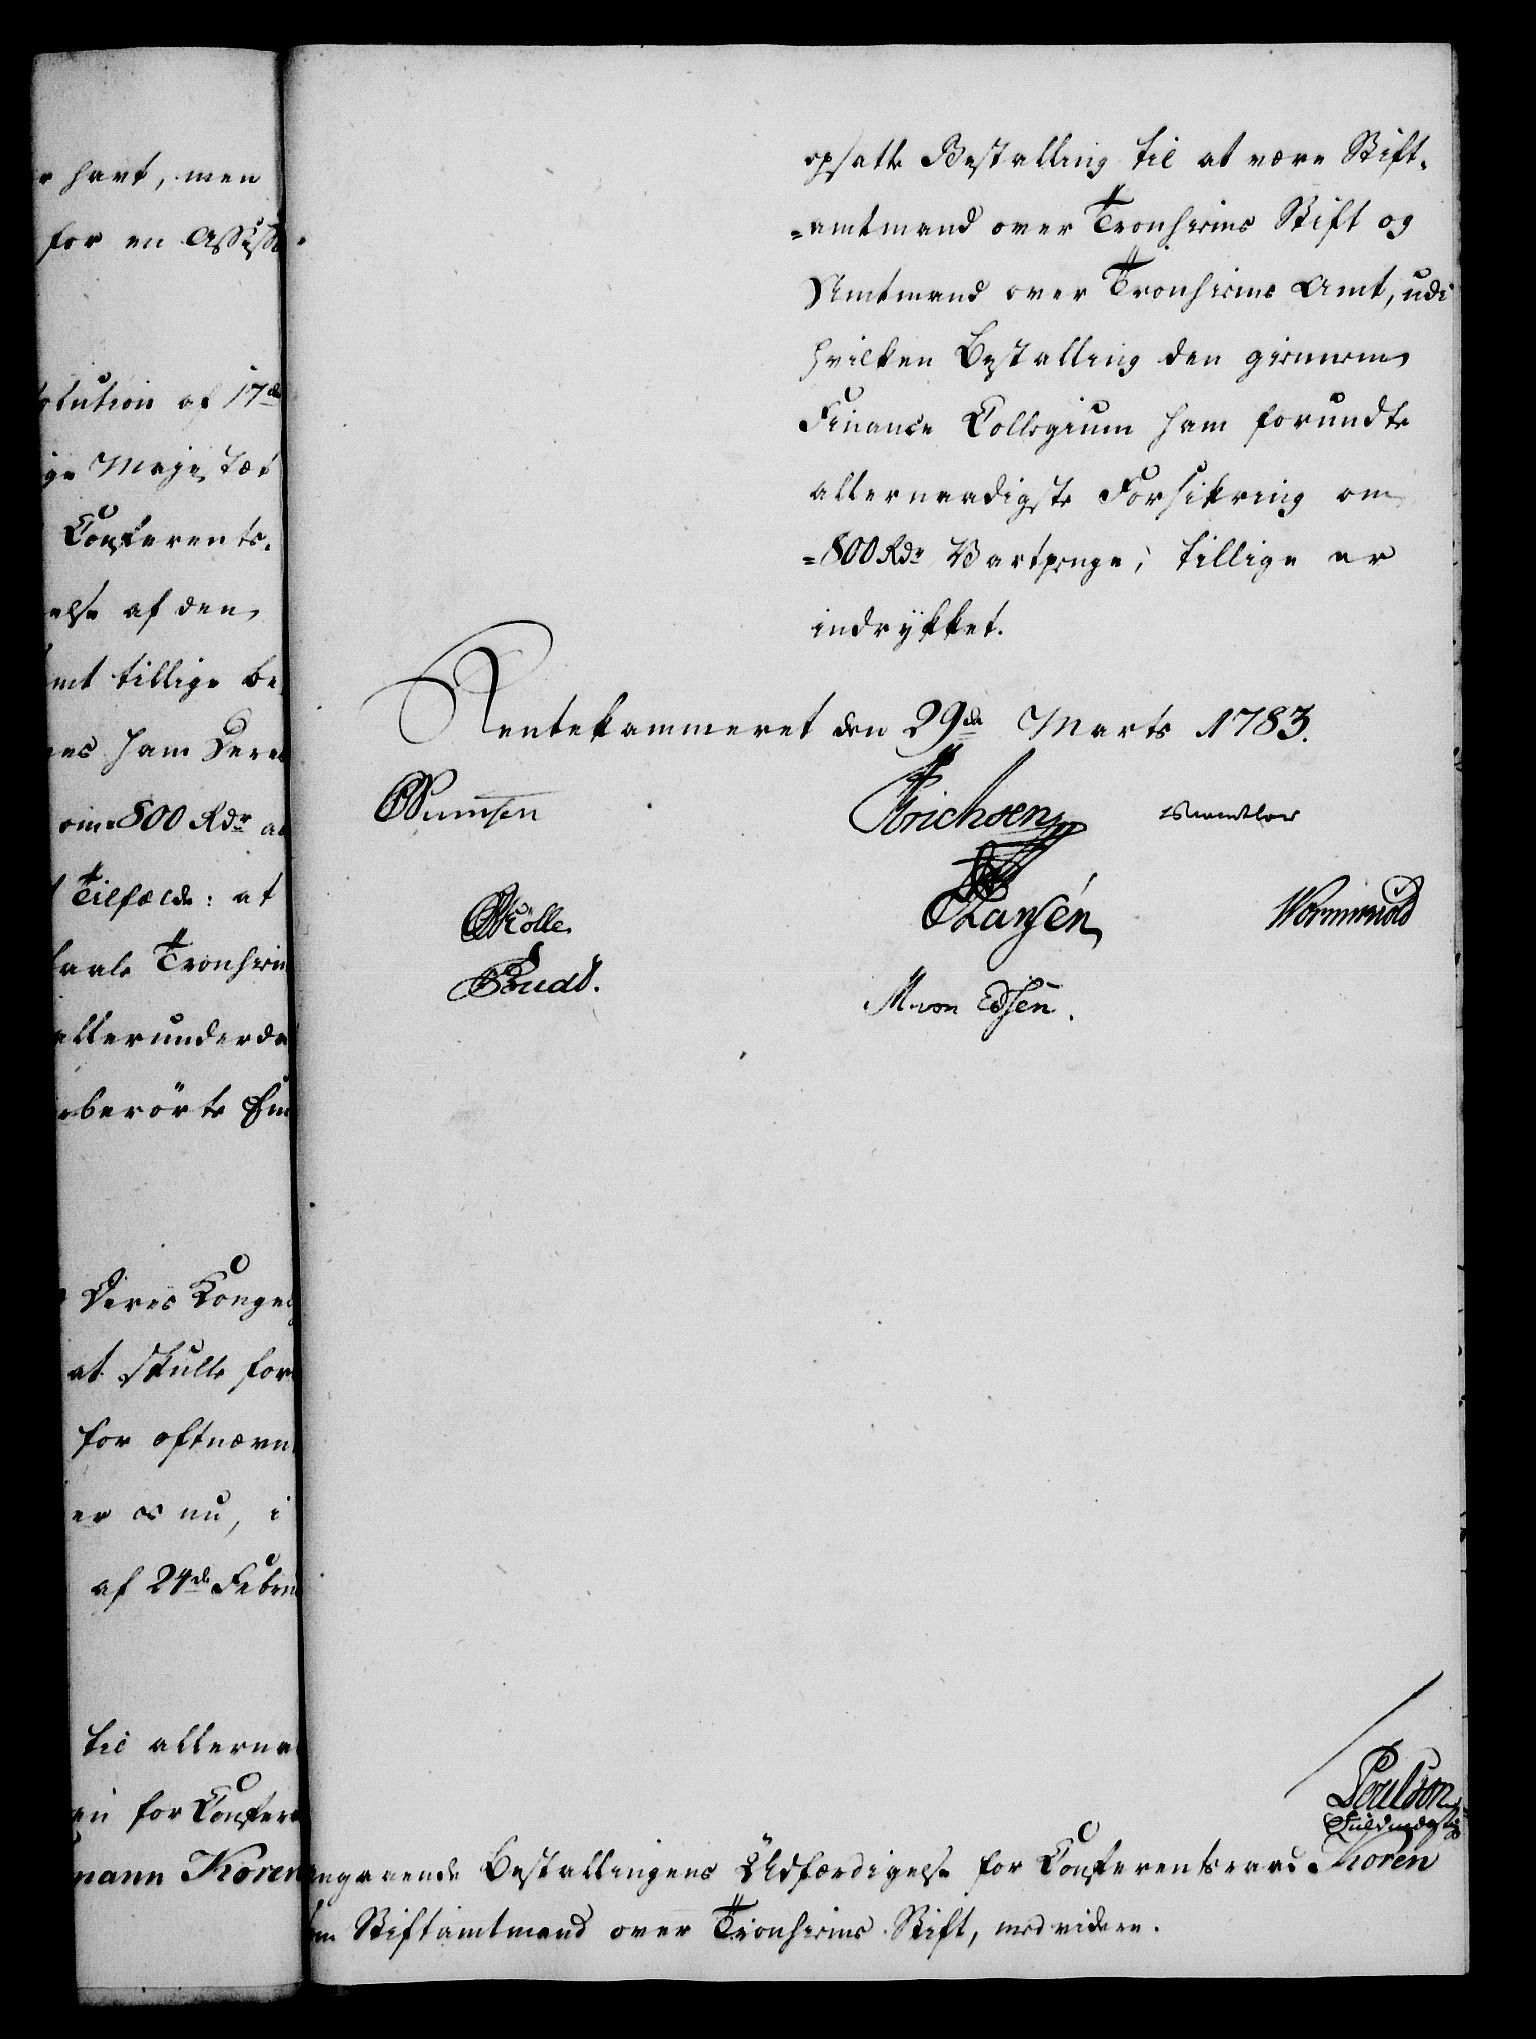 r havt, men
for en Assisten
olution af 17de
ge Majestæt
Conferents-
else af den
mt tillige be
es ham Deres
om 800 Rdr. a
Tilfælde: at
aale Tronhiem
allerunderda
berörte Em
Deres Kongel
at skulle for
for oftnævn
er os nu, i
af 24de Febru
til allerna
en for Confere
mann Koren
opsatte Bestalling til at være Stift-
=amtmand over Tronhiems Stift og
Amtmand over Tronhiems Amt, udi
hvilken Bestalling den giennem
Finance Collegium ham forundte
allernaadigste Forsikring om
=800 Rdr. Vartpenge, tillige er
indrykket.
Rentekammeret den 29de Marts 1783.
Erichsen
Mölle
Hansén
Wormskiold
M. von Essen.
Poulson
Fuldmægtig
angaaende Bestallingens Udfærdigelse for Conferentsraad Koren
som Stiftamtmand over Tronhiems Stift, med videre.